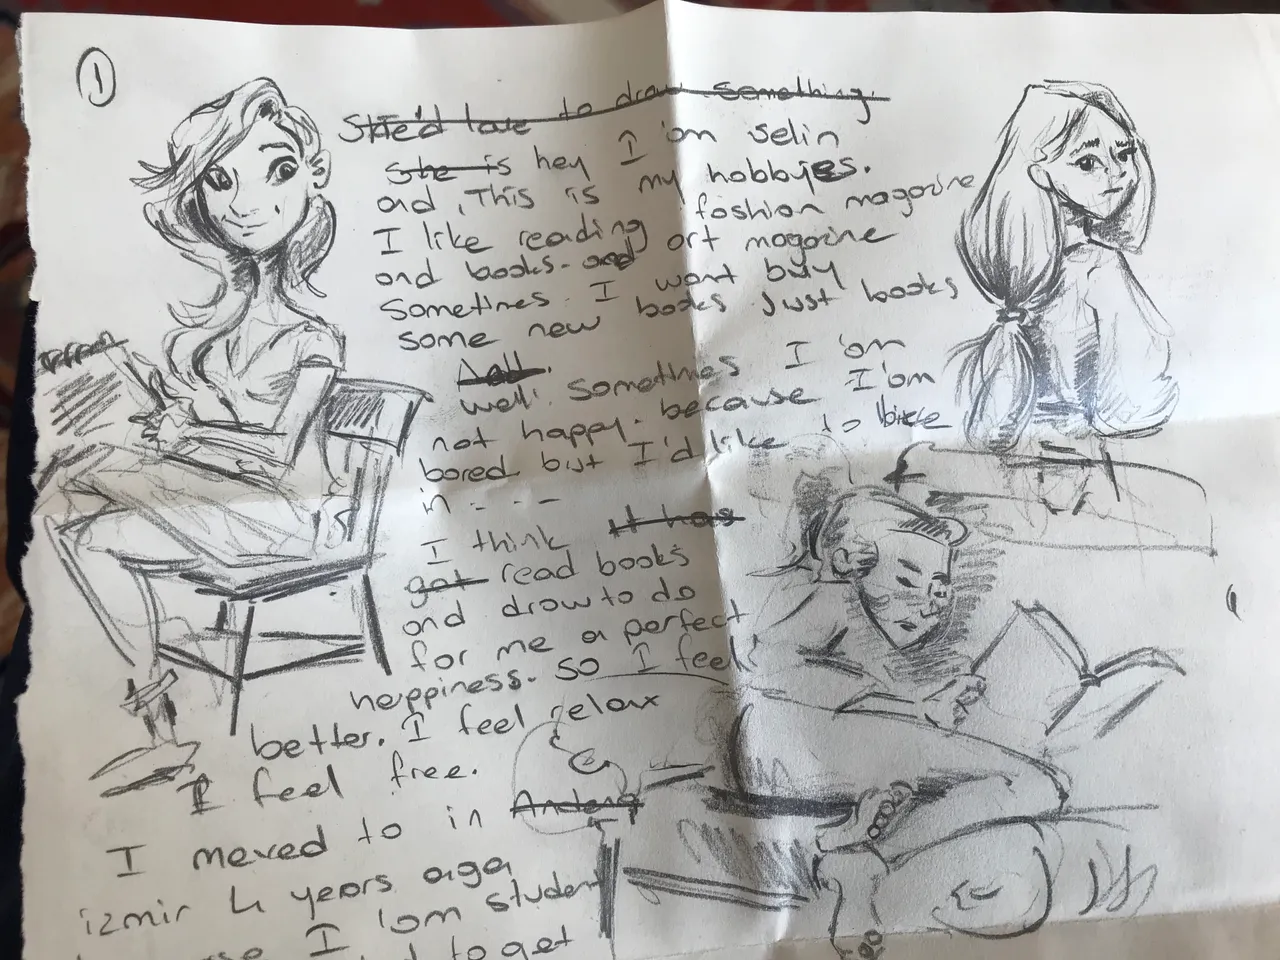 1
She'd love to draw something.
She is hey I 'am selin
and, This is my hobbyies.
I like reading fashion magazine
and books. and art magazine
Sometimes I want buy
some new books just books
well. Sometimes I 'am
not happy. because I'am
bored but I'd like to
in - - -
I think it has
got read books
and draw to do
for me a perfect
happiness. So I feel
better. I feel relax
I feel free.
I moved to in
izmir 4 years aga
I 'am student
to get